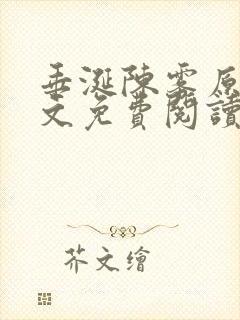 垂涎陳雾原
文免費閱讀
芥文繪